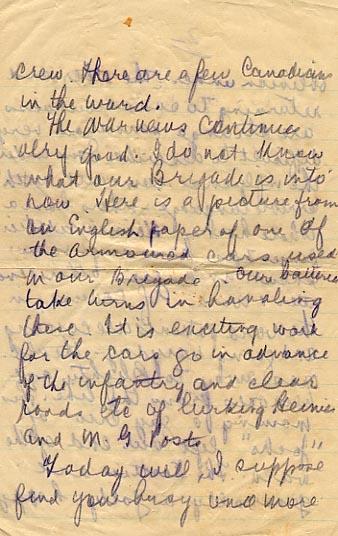 crew. There are a few Canadians
in the ward.
The war news continues
very good. I do not know
what our Brigade is into
now. Here is a picture from
an English paper of one of
the armoured cars used
in our Brigade. Our batteries
take turns in handling
these. It is exciting work
for the cars go in advance
of the infantry and clear
roads etc of lurking Heinies
and M. G. Posts
Today will I suppose
find you busy and more